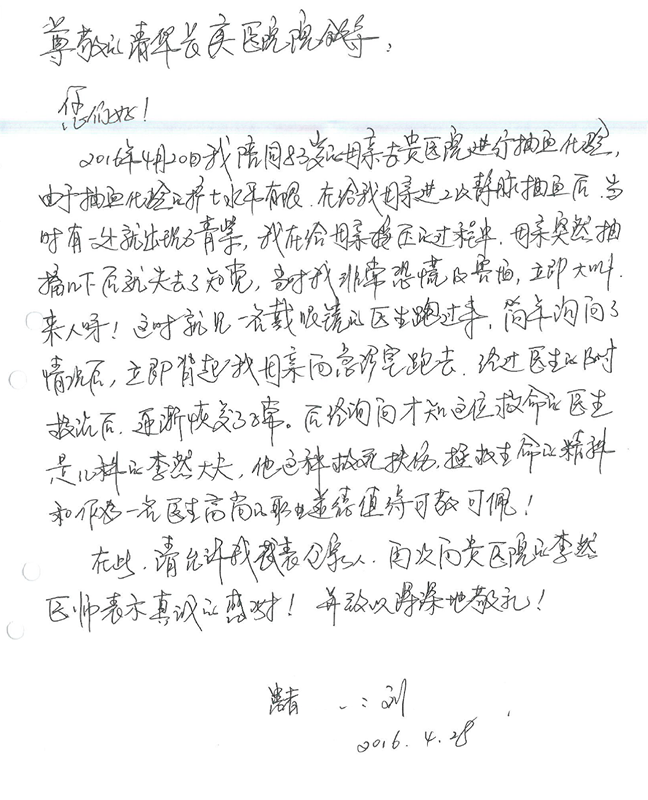 尊敬的清华长庚医院院领导,
您们好!
2016年4月20日我陪同83岁的母亲去贵医院进行抽血化验,
由于抽血化验的护士水平有限.在给我母亲进2次静脉抽血后.当
时有一处就出现了青紫,我在给母亲按压的过程中.母亲突然抽
搐几下后就失去了知觉,当时我非常恐慌及害怕,立即大叫.
来人呀!这时就见一名戴眼镜的医生跑过来,简单询问了
情况后,立即背起我母亲向急诊室跑去.经过医生的及时
救治后.逐渐恢复了正常。后经询问才知这位救命的医生
是儿科的李然大夫,他这种救死扶伤,拯救生命的精神
和作为一名医生高尚的职业道德值得可敬可佩!
在此.请允许我代表全家人.再次向贵医院的李然
医师表示真诚的感谢!并致以深深地敬礼!
患者 刘
2016.4.28